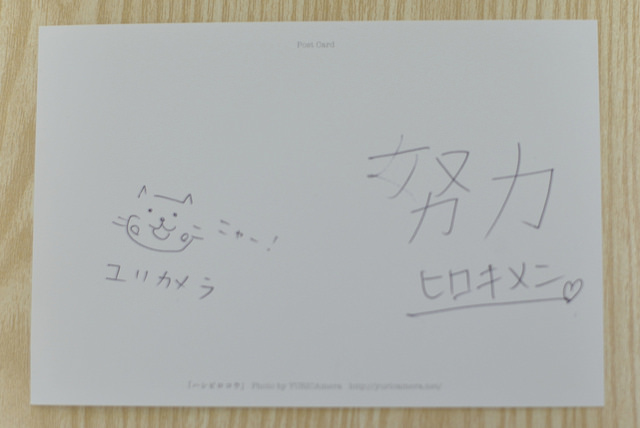 Post Card
努力
ニャー!
ユリカメラ
ヒロキメン♡
Photo by YURI